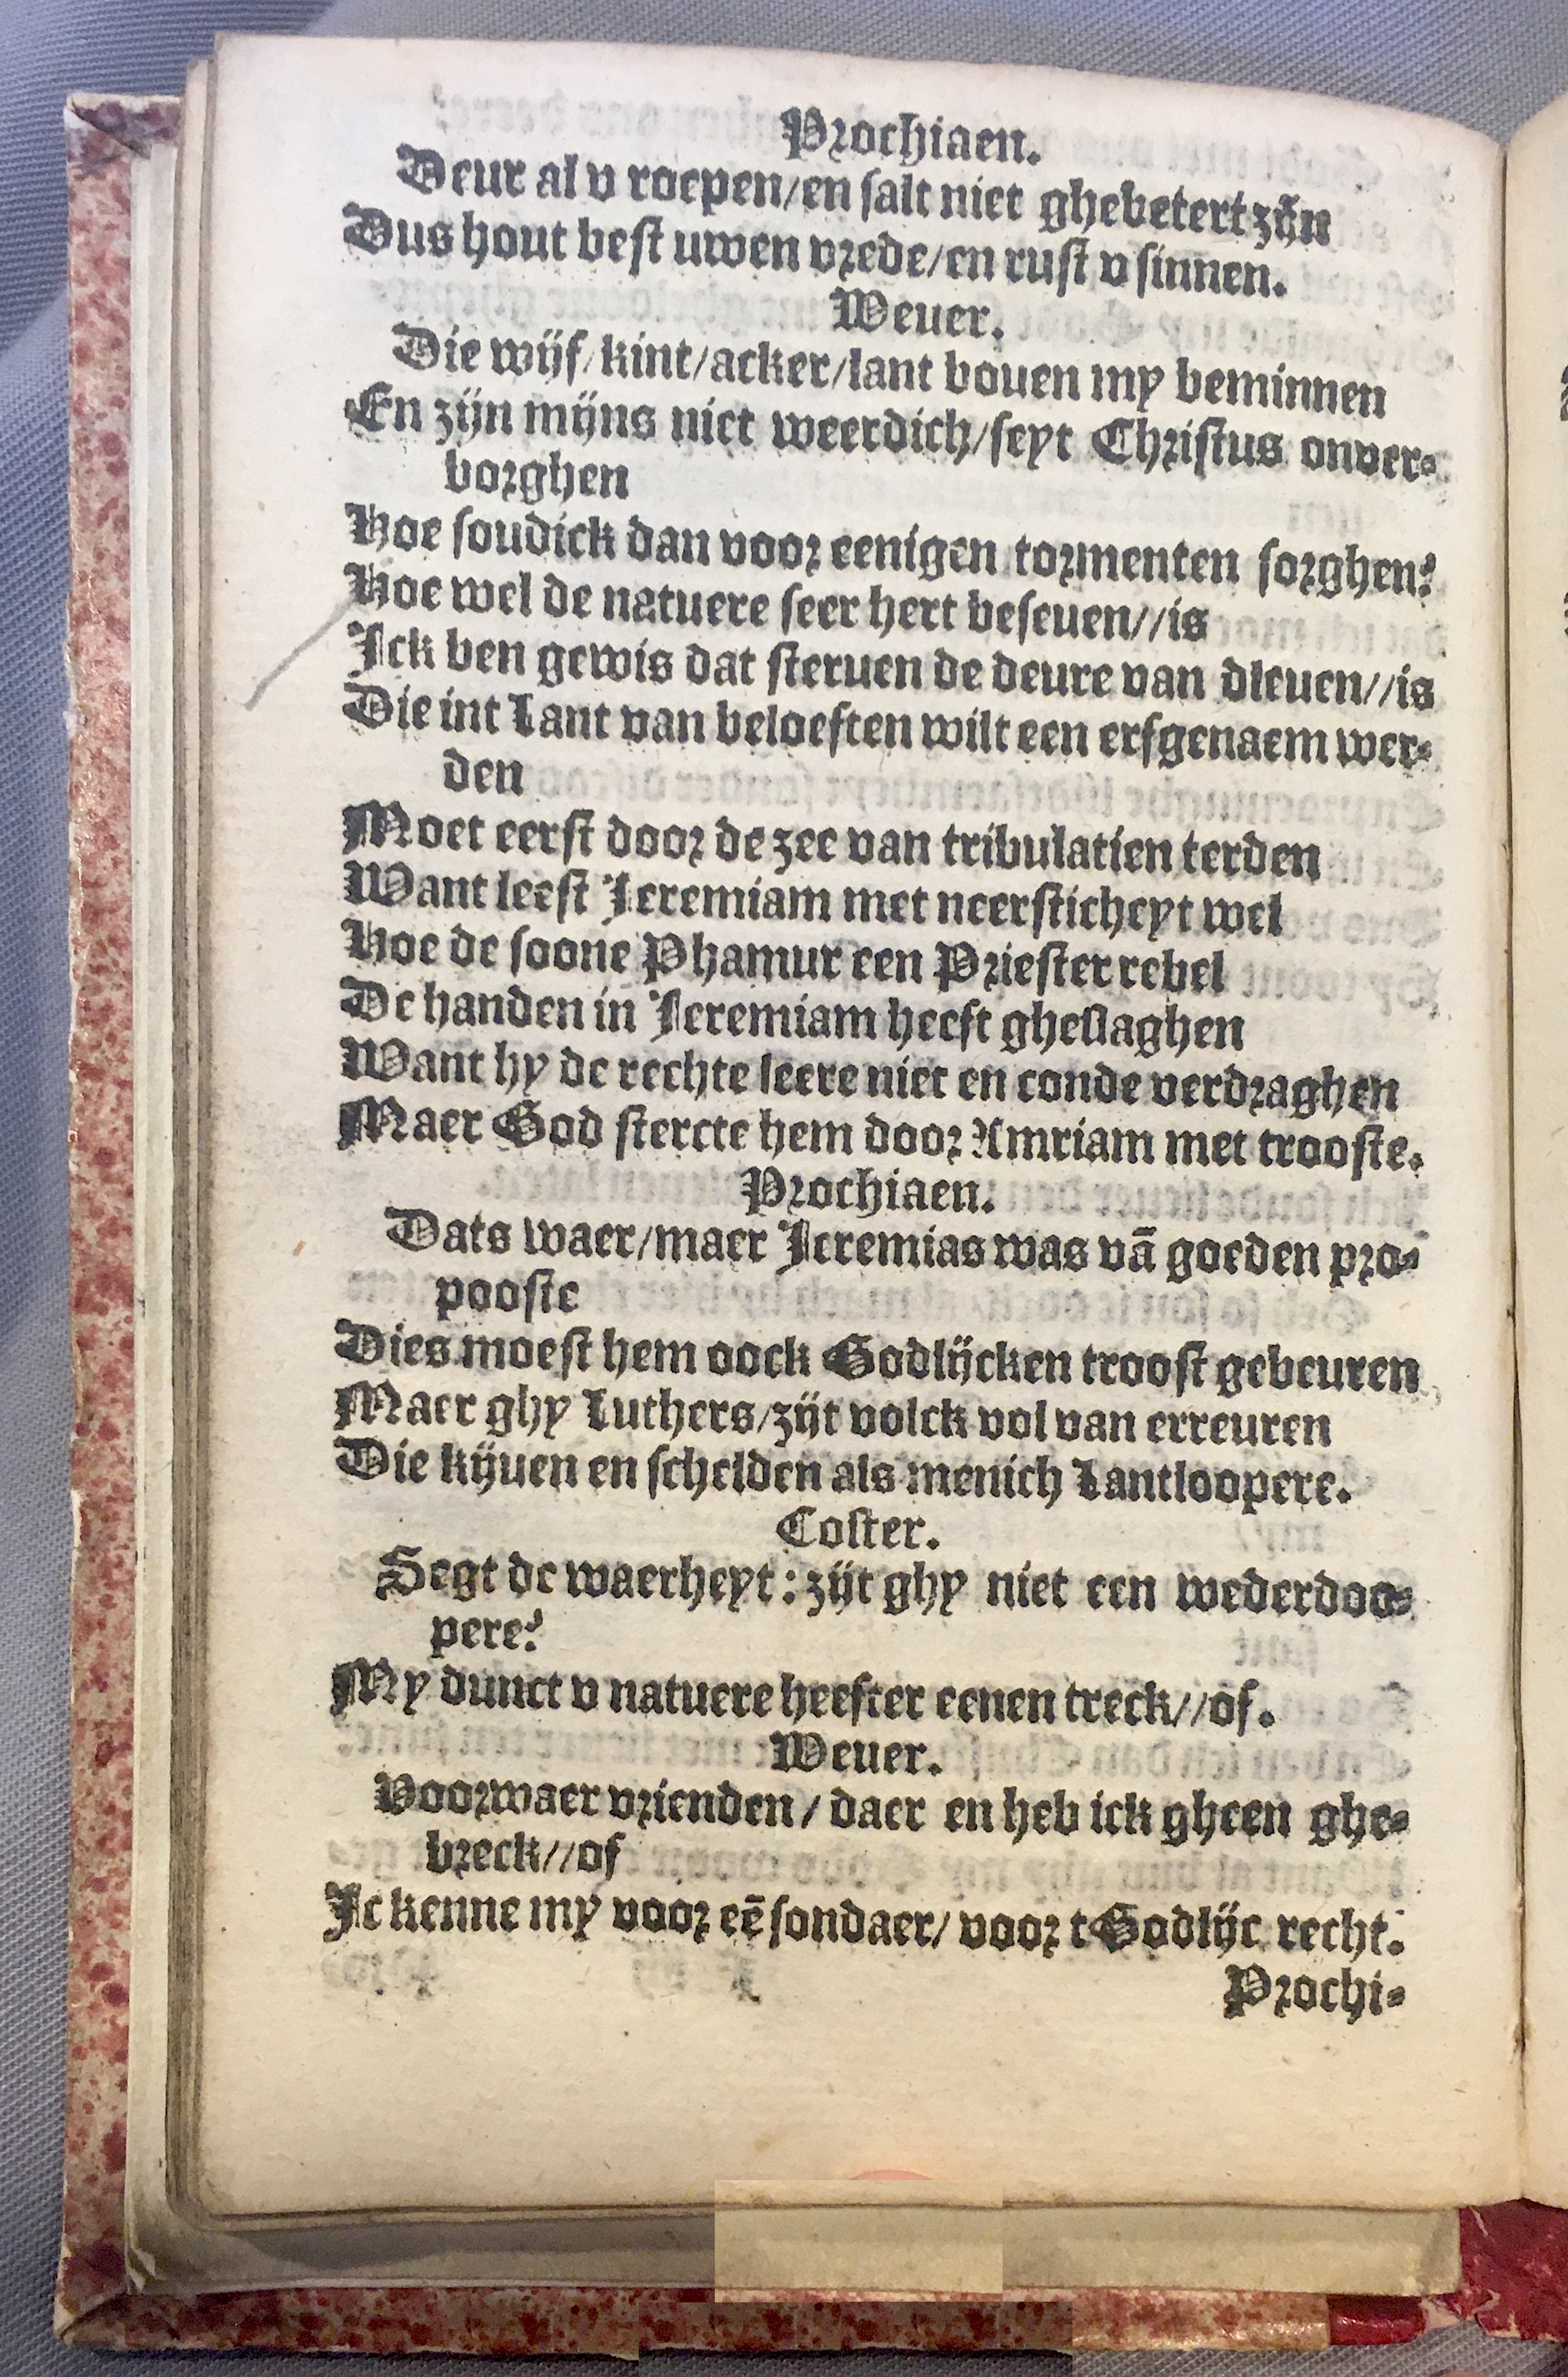 Prochiaen.
Deur al v roepen/en salt niet ghebetert zijn
Dus hout best uwen vrede/en rust v sinnen.
Weuer.
Die wijf/kint/acker/lant bouen my beminnen
En zijn mijns niet weerdich/seyt Christus onver-
borghen
Hoe soudick dan voor eenigen tormenten sorghen?
Hoe wel de natuere seer hert beseuen//is
Ick ben gewis dat steruen de deure van dleuen//is
Die int Lant van beloeften wilt een erfgenaem wer-
den
Moet eerst door de zee van tribulatien terden
Want leest Jeremiam met neersticheyt wel
Hoe de soone Phamur een Priester rebel
De handen in Jeremiam heeft gheslaghen
Want hy de rechte leere niet en conde verdraghen
Maer God stercte hem door Amriam met trooste.
Prochiaen.
Dats waer/maer Jeremias was vā goeden pro-
pooste
Dies moest hem oock Godlijcken troost gebeuren
Maer ghy Luthers/zijt volck vol van erreuren
Die kijuen en schelden als menich Lantloopere.
Coster.
Segt de waerheyt: zijt ghy niet een wederdoo-
pere?
My dunct v natuere heefter eenen treck//of.
Weuer.
Voorwaer vrienden/ daer en heb ick gheen ghe-
breck//of
Jc kenne my voor eē sondaer/ voor t Godlijc recht.
Prochi-